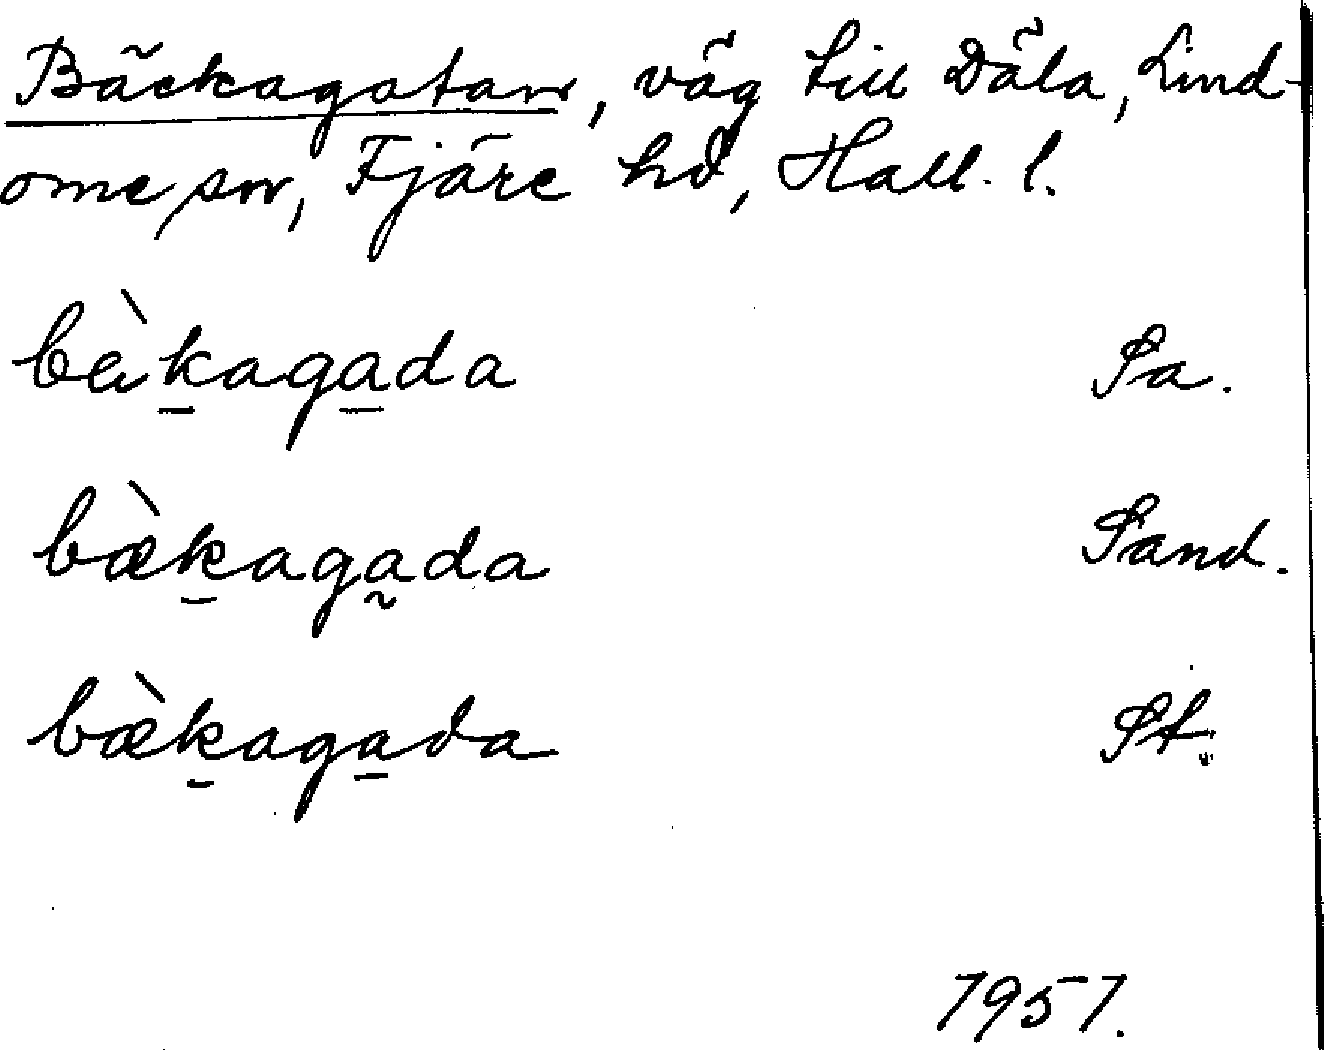 Bäckagatan, väg till Däla, Lind-
ome sn, Fjäre hd, Hall. l.
bèk̠aga̠da Sa.
bæ̀k̠aga̰da Sand.
bæ̀k̠aga̠da St.
1957.